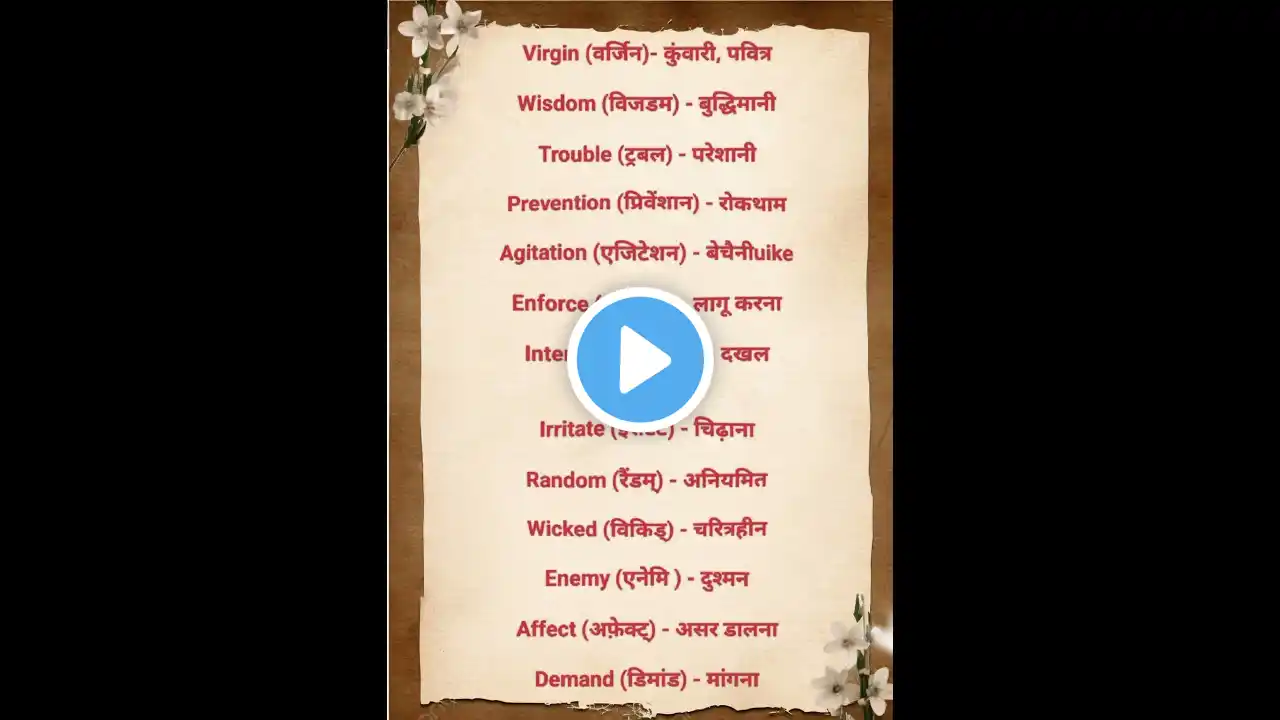 Virgin (वर्जिन)- कुंवारी, पवित्र
Wisdom (विजडम) - बुद्धिमानी
Trouble (ट्रबल) - परेशानी
Prevention (प्रिवेंशान) - रोकथाम
Agitation (एजिटेशन) - बेचैनीuike
Enforce - लागू करना
दखल
Irritate - चिढ़ाना
Random (रैंडम्) - अनियमित
Wicked (विकिड्) - चरित्रहीन
Enemy (एनेमि ) - दुश्मन
Affect (अफ़ेक्ट्) - असर डालना
Demand (डिमांड) - मांगना